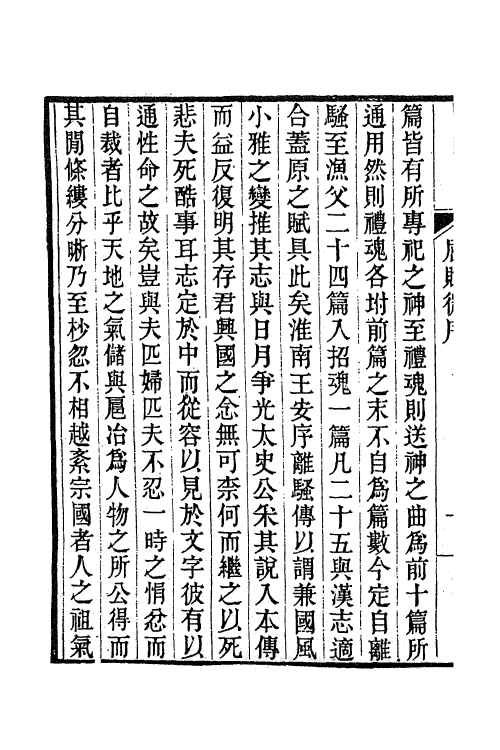 篇皆有所專祀之神至禮魂則送神之曲為前十篇所
通用然則禮魂各坿前篇之末不自為篇數今定自離
騷至漁父二十四篇入招魂一篇凡二十五與漢志適
合蓋原之賦具此矣淮南王安序離騷傳以謂兼國風
小雅之變推其志與日月爭光太史公采其說入本傳
而益反復明其存君興國之念無可柰何而繼之以死
悲夫死酷事耳志定於中而從容以見於文字彼有以
通性命之故矣豈與夫匹婦匹夫不忍一時之悁忿而
自裁者比乎天地之氣儲與扈冶為人物之所公得而
其閒條縷分晰乃至杪忽不相越紊宗國者人之祖氣